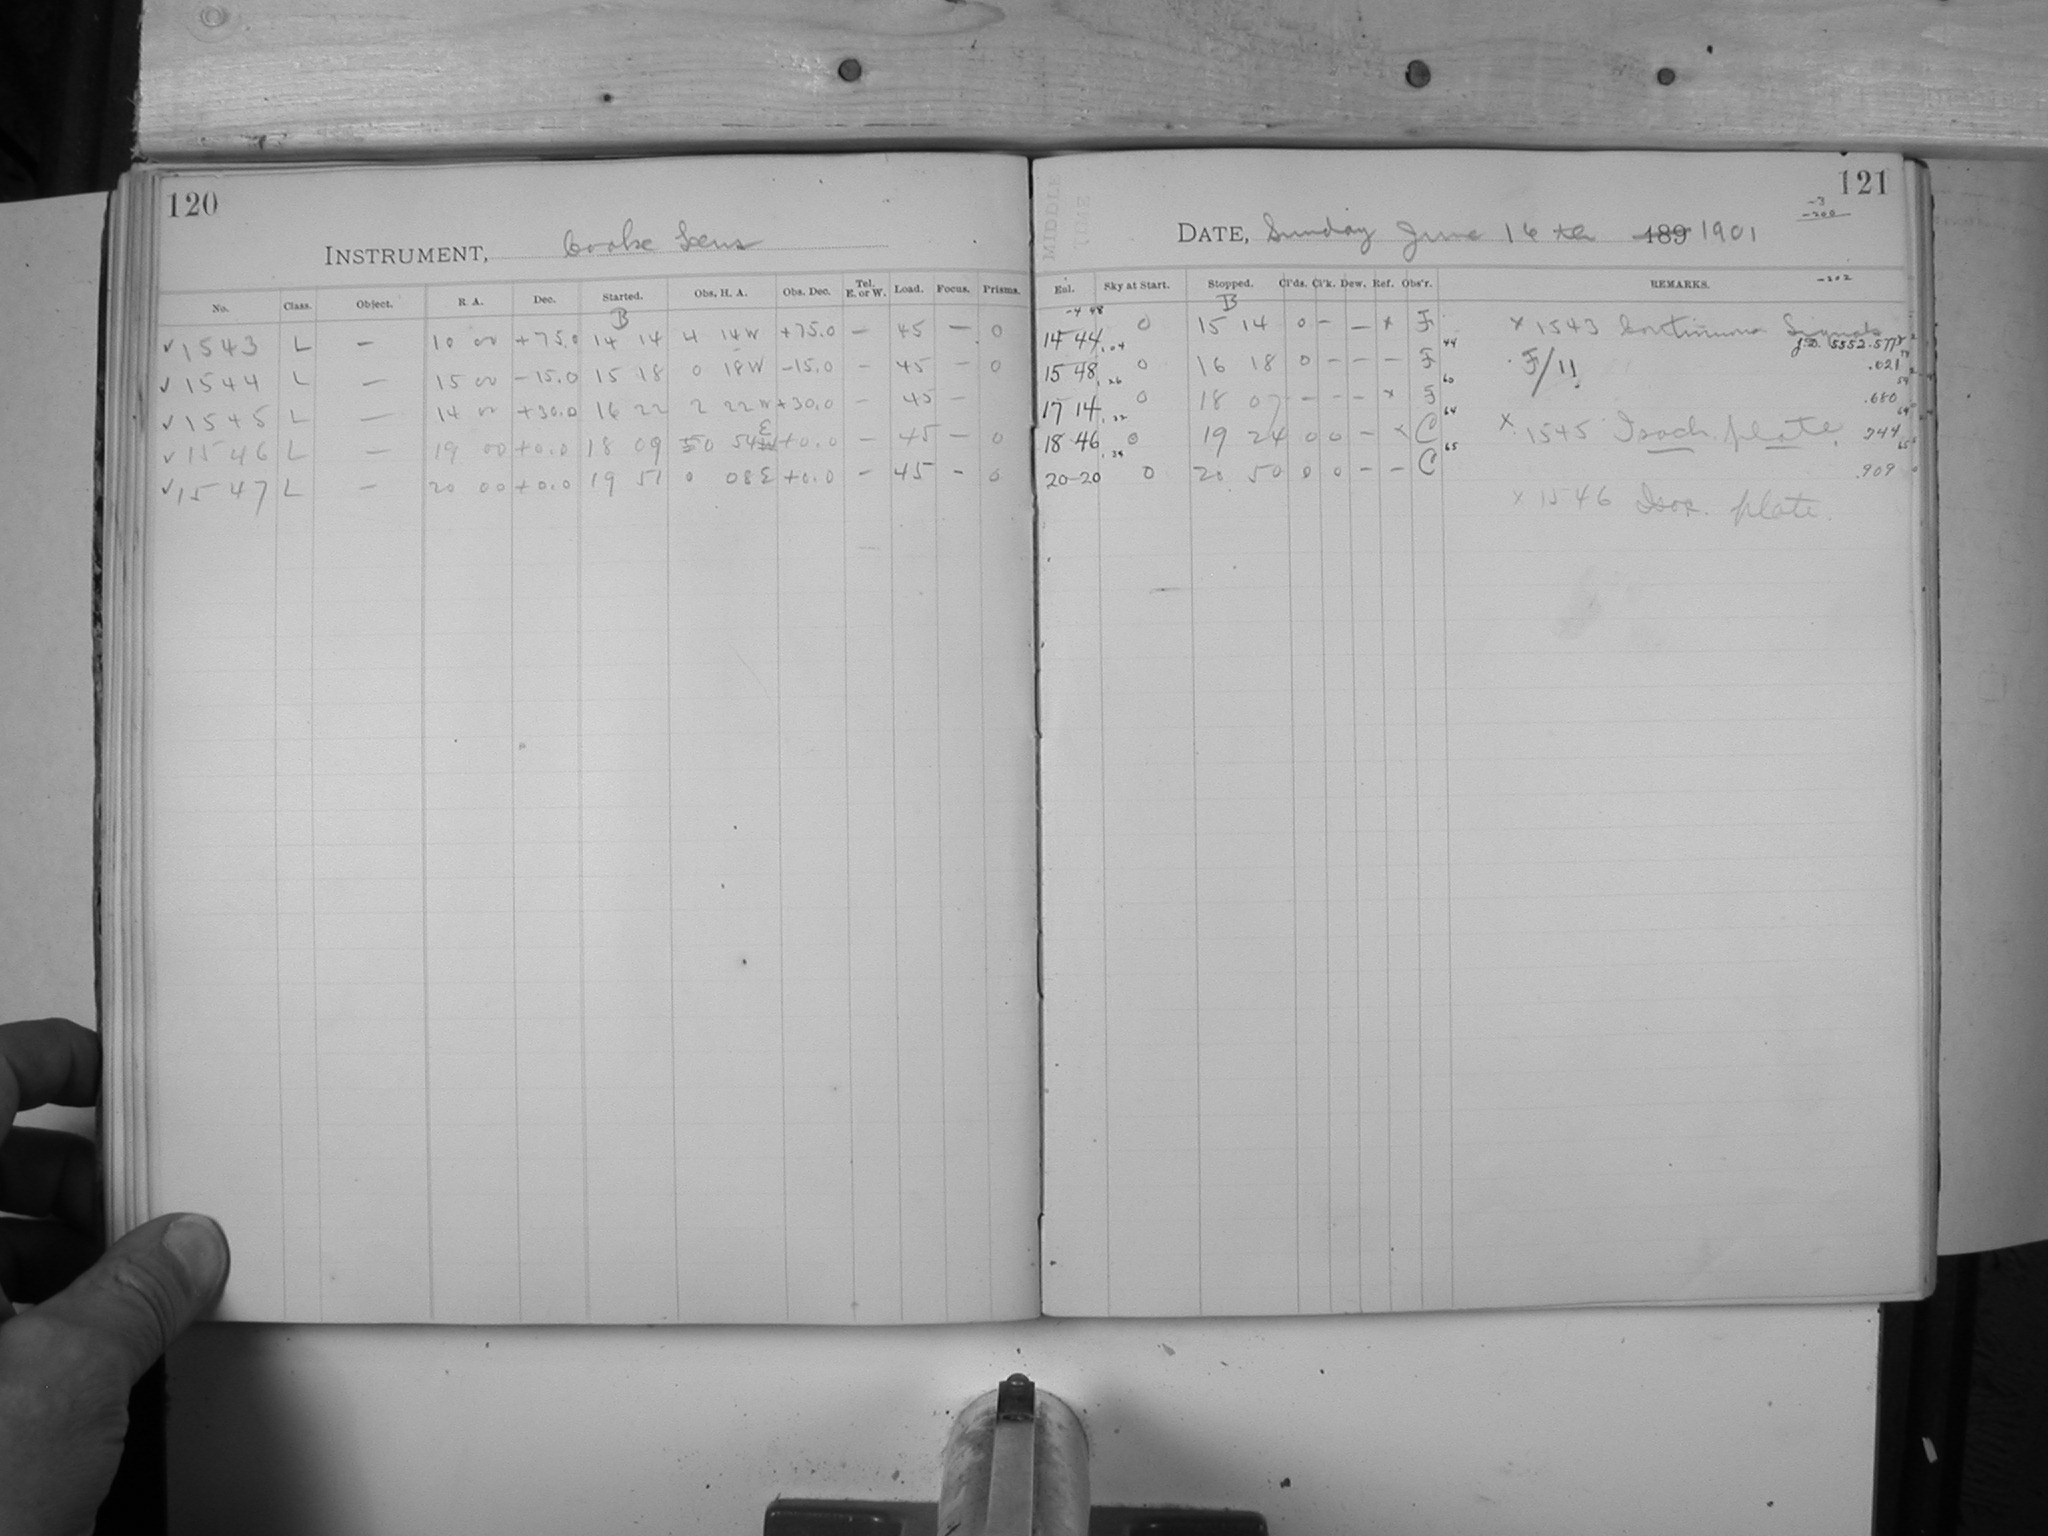 120
INSTRUMENT, Cooke Lens
No. Class. Object. R. A. Dec. Started. Obs. H. A. Obs. Dec. Tel. E. or W. Load. Focus. Prisms.
B
✓1543 L — 10 00 +75.0 14 14 4 14W +75.0 — 45 — 0
✓1544 L — 15 00 -15.0 15 18 0 18W -15.0 — 45 — 0
✓1545 L — 14 00 +30.0 16 22 2 22W +30.0 — 45 —
✓1546 L — 19 00 +0.0 18 09 0 54E +0.0 — 45 — 0
✓1547 L — 20 00 +0.0 19 51 0 08E +0.0 — 45 — 0
121
-3
-200
DATE, Sunday June 16th 189 1901
-202
Exl. Sky at Start. Stopped. Cl'ds. Cl'k. Dew. Ref. Obs'r. REMARKS.
-4 48 B
14 44 0 15 14 0 — — x F x 1543 Continuous Signals
J.D. 5552.577
15 48 0 16 18 0 — — — F F/11 .021
17 14 0 18 07 — — — x F .680
18 46 0 19 24 0 0 — x C x 1545 Isoch. plate. .744
20-20 0 20 50 0 0 — — C .909
x 1546 Isoc. plate.